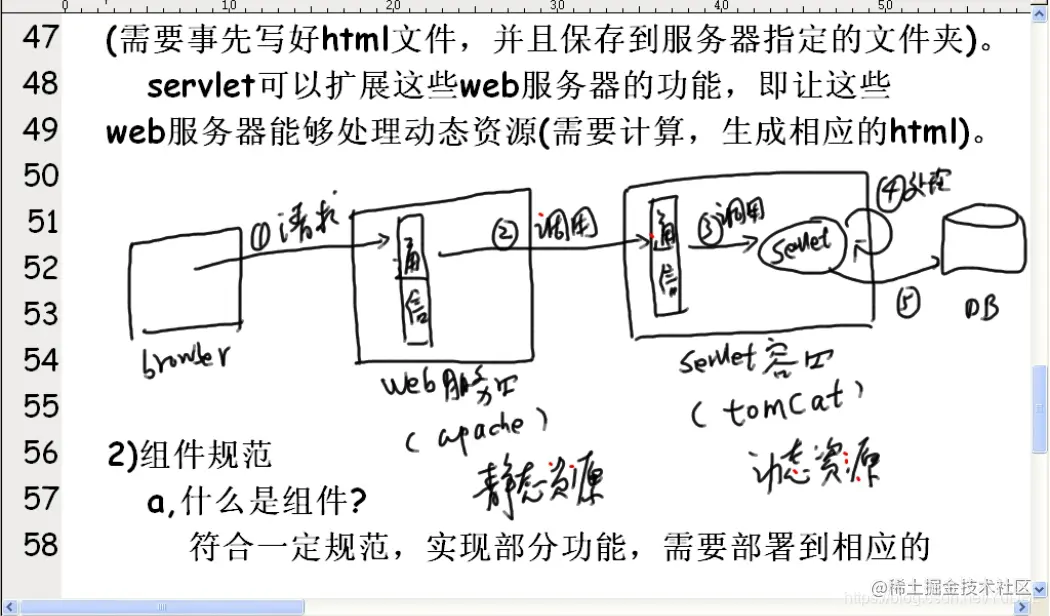 0 10 20 30 40 50
47 (需要事先写好html文件，并且保存到服务器指定的文件夹)。
48 servlet可以扩展这些web服务器的功能，即让这些
49 web服务器能够处理动态资源(需要计算，生成相应的html)。
50
④处理
51 ①请求 ②调用 通信 ③调用
52 通信 servlet
53 ⑤ DB
54 browser servlet容
55 web服务 (tomcat)
(apache)
56 2)组件规范 静态资源 动态资源
57 a,什么是组件?
58 符合一定规范，实现部分功能，需要部署到相应的
@稀土掘金技术社区